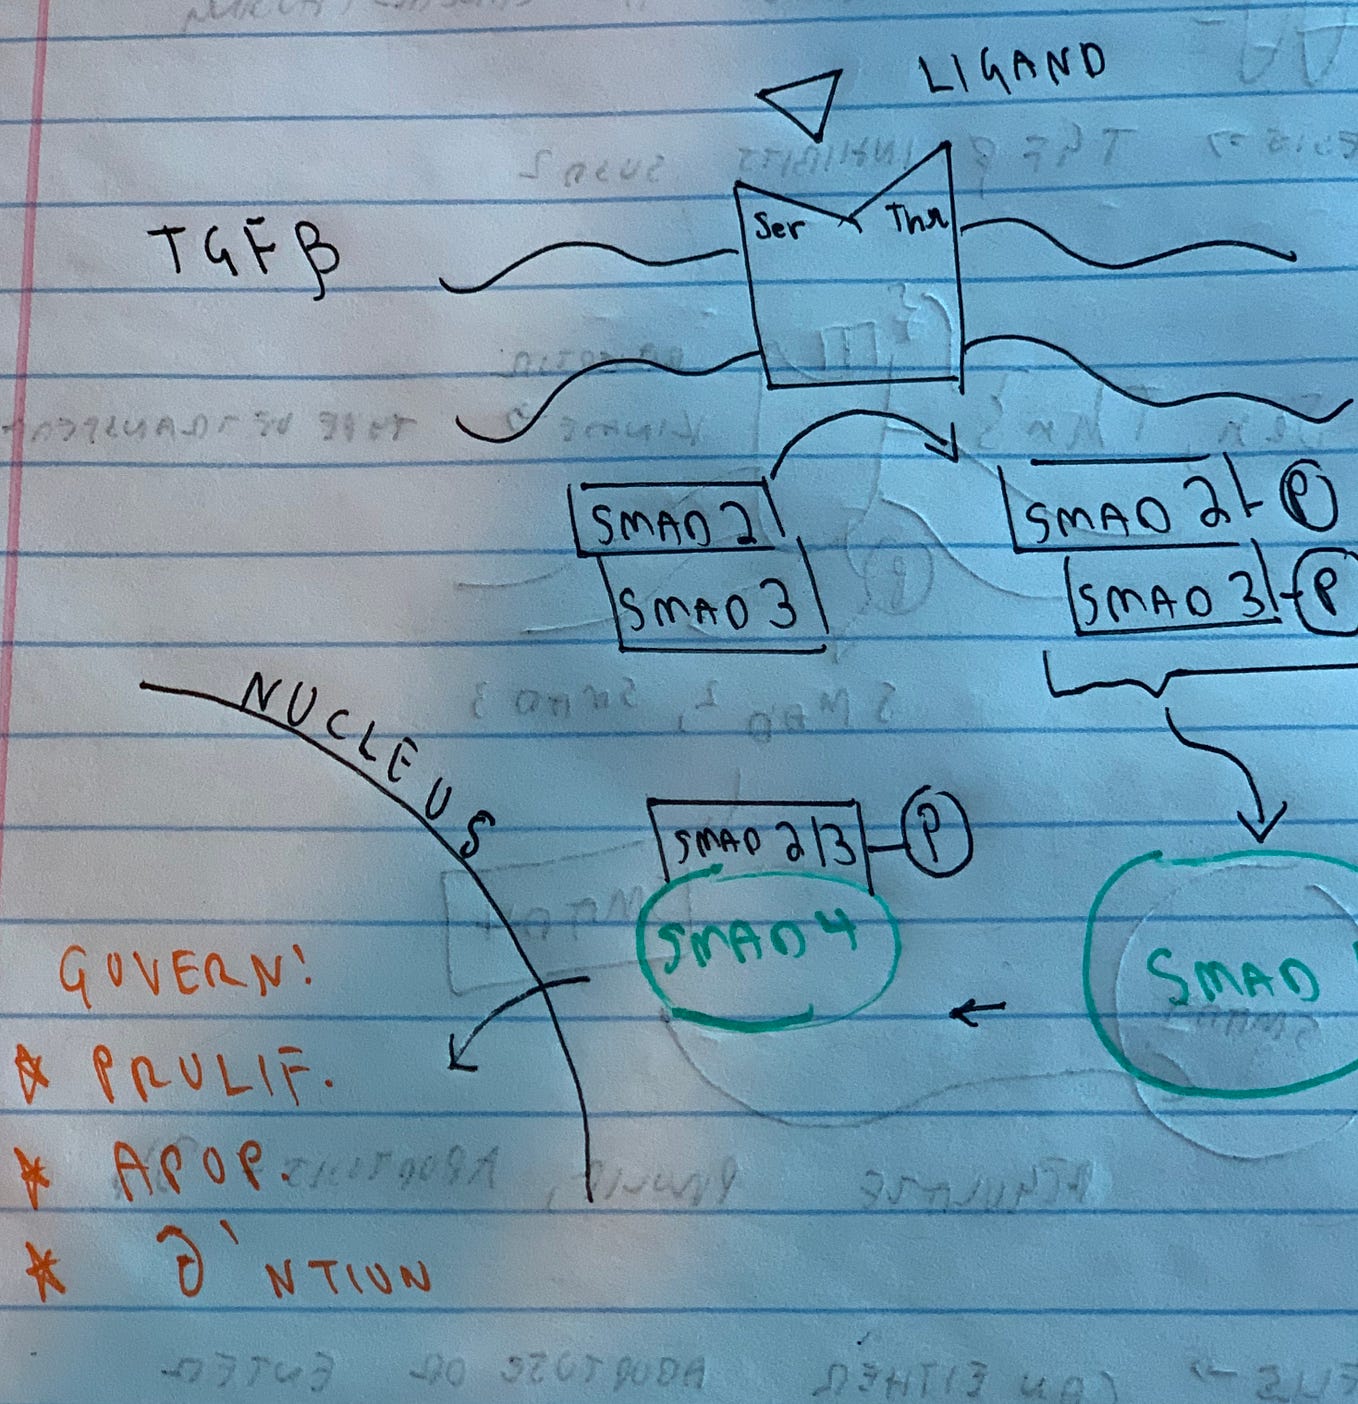 LIGAND
TGFβ
Ser Thr
SMAD 2
SMAD 3
SMAD 2 P
SMAD 3 P
NUCLEUS
SMAD 2/3 P
SMAD 4
SMAD
GOVERN!
* PROLIF.
* APOP.
* ∂'NTION